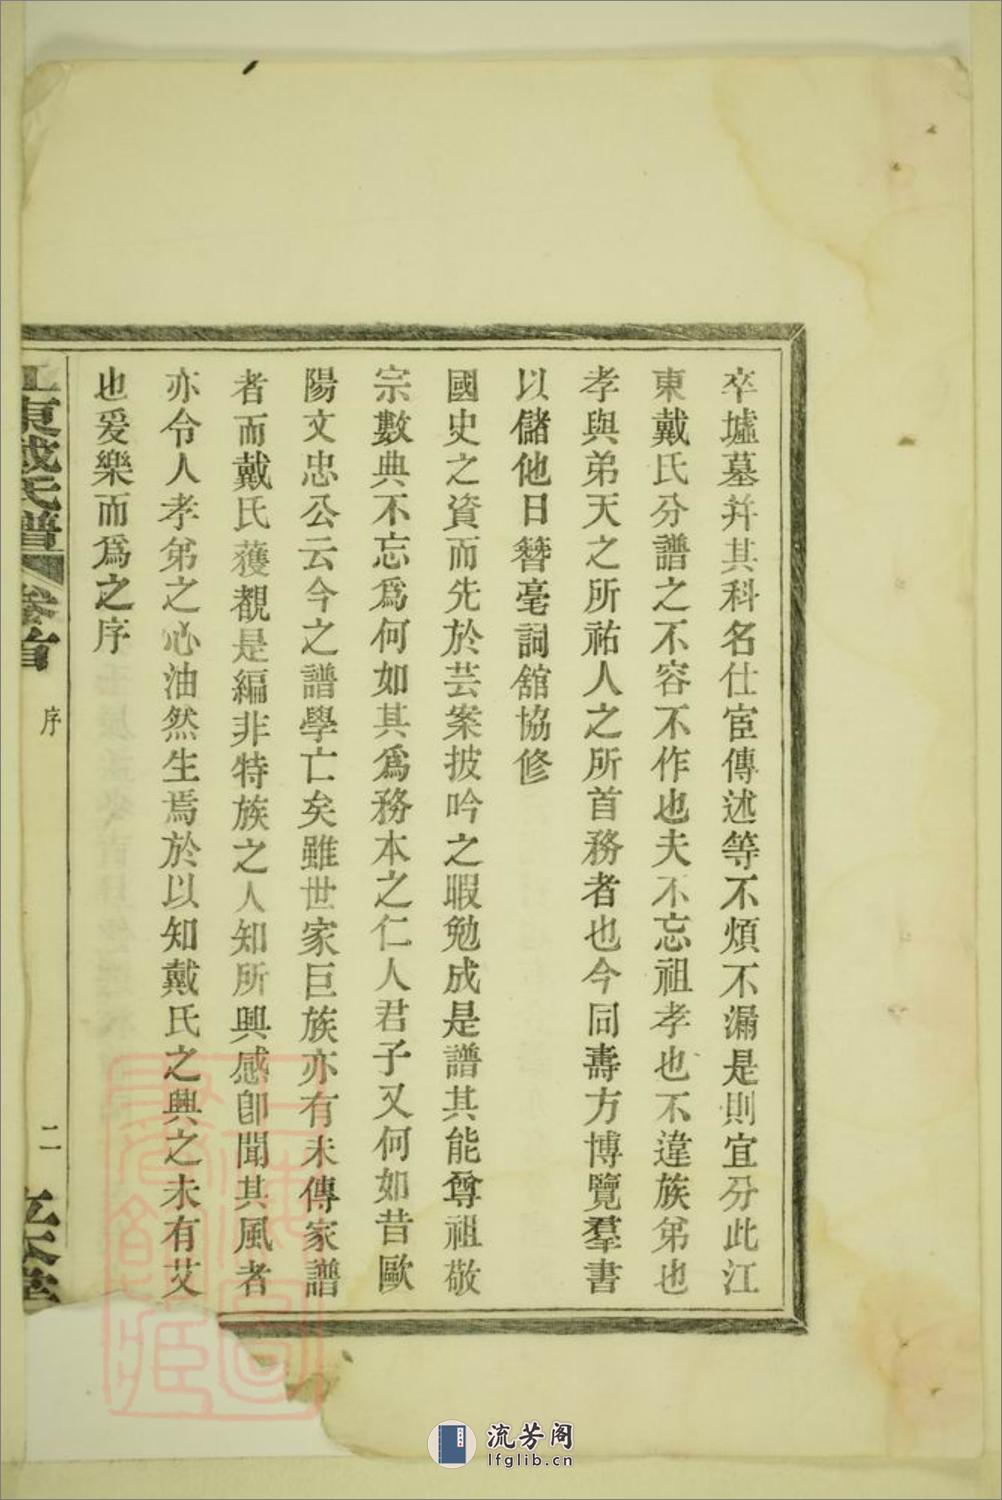 卒墟墓并其科名仕宦傳述等不煩不漏是則宜分此江
東戴氏分譜之不容不作也夫不忘祖孝也不違族弟也
孝與弟天之所祐人之所首務者也今同壽方博覽羣書
以儲他日簪毫詞舘協修
國史之資而先於芸案披吟之暇勉成是譜其能尊祖敬
宗數典不忘爲何如其爲務本之仁人君子又何如昔歐
陽文忠公云今之譜學亡矣雖世家巨族亦有未傳家譜
者而戴氏獲覩是編非特族之人知所興感卽聞其風者
亦令人孝弟之心油然生焉於以知戴氏之興之未有艾
也爰樂而爲之序
江東戴氏譜 卷首 序 二
流芳阁
lfglib.cn